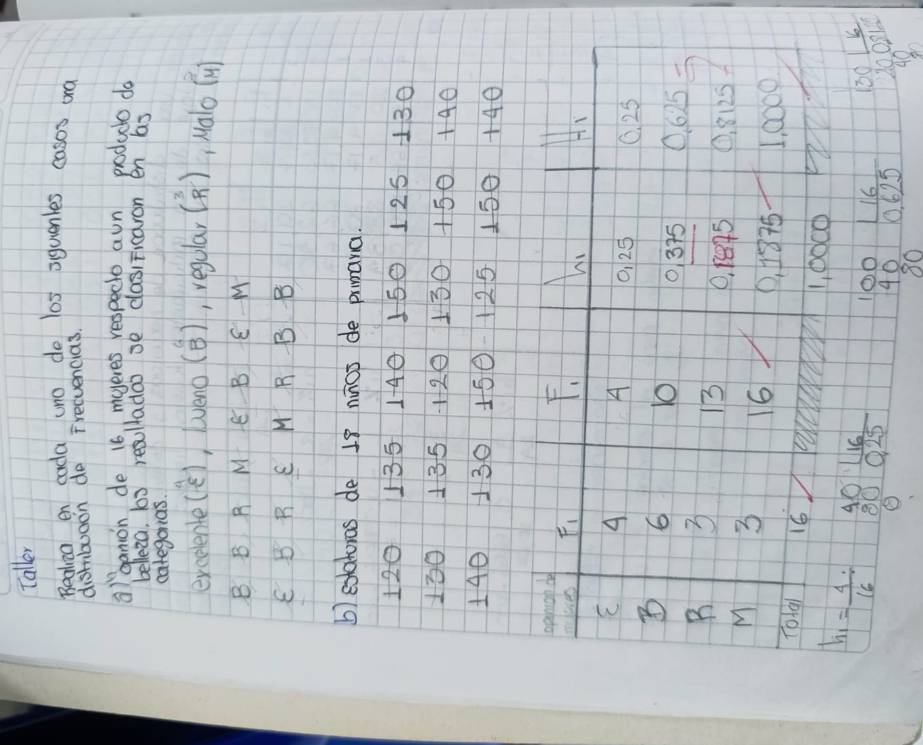 Taller
Realiza en cada uno de los siguientes casos una
distribución de Frecuencias.
a) opinión de 16 mujeres respecto aun producto de
belleza. los resultados se clasificaron en las
categorias.
excelente (E), bueno (B), regular (R), Malo (M)
B B R M E B E M
E B R E M R B B
b) estaturas de 18 niños de primaria.
120 135 140 150 125 130
130 135 120 130 150 140
140 130 150 125 150 140
opinion de mujeres F1 F1 h1 H1
E 4 4 0,25 0,25
B 6 10 0,375 0,625
R 3 13 0,1875 0,8125
M 3 16 0,1875 1,0000
Total 16 1,0000
h1 = 4/16 40 16 100 16 130 16
80 0,25 40 0,625 20
0 80 40